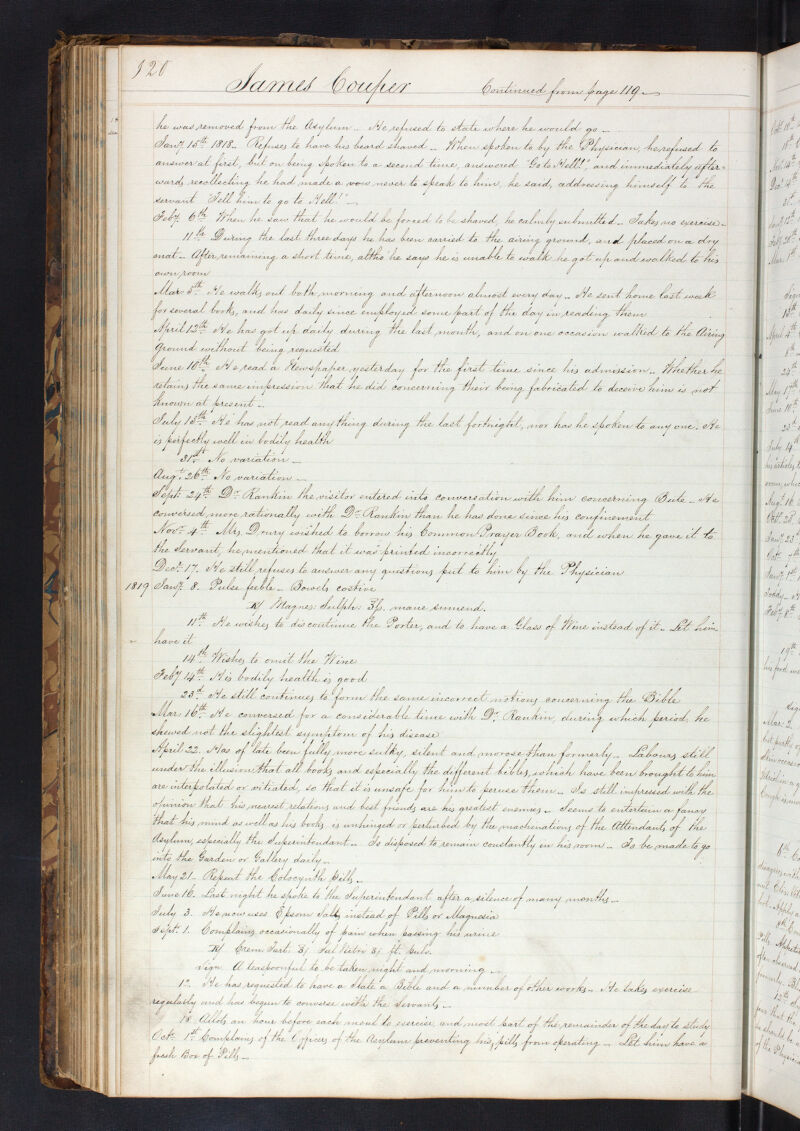 120
James Couper Continued from page 119
he was removed from the Asylum He refused to state where he would go
Jany 15th 1818 Refuses to have his beard shaved When spoken to by the Physician, he refused to
answer at first, but on being spoken to a second time, answered "Go to Hell!", and immediately after-
wards, recollecting he had made a vow never to speak to him, he said, addressing himself to the
servant "Tell him to go to Hell!"
Feby 6th When he saw that he would be forced to be shaved, he calmly submitted Takes no exercise
11th During the last three days he has been carried to the airing ground, and placed on a dry
mat After remaining a short time, altho' he says he is unable to walk he got up and walked to his
own room
Mar 5th He walks out both morning and afternoon almost every day He sent home last week
for several books, and has daily since employed some part of the day in reading them
April 13th He has got up daily during the last month, and on one occasion walked to the Airing
Ground without being requested
June 10th He read a Newspaper yesterday for the first time since his admission Whether he
retains the same impression that he did concerning their being fabricated to deceive him is not
known at present
July 15th He has not read any thing during the last fortnight, nor has he spoken to any one. He
is perfectly well in bodily health
31st No variation
Augt 26th No variation
Sept 24th Dr Rankin the visitor entered into conversation with him concerning Bute He
conversed more rationally with Dr Rankin than he has done since his confinement
Novr 4th Mrs Drury wished to borrow his Common Prayer Book, and when he gave it to
the Servant, he mentioned that it was printed incorrectly
Decr 17. He still refuses to answer any questions put to him by the Physician
1819 Jany 8. Pulse feeble Bowels costive
Magnes: Sulph: mane sumend.
11th He wishes to discontinue the Porter, and to have a Glass of Wine instead of it Let him
have it
14th Wishes to omit the Wine
Feby 14th His bodily health is good
23d He still continues to form the same incorrect notions concerning the Bible
Mar 16th He conversed for a considerable time with Dr Rankin, during which period, he
shewed not the slightest symptom of his disease
April 22. Has of late been fully more sulky, silent and morose than formerly Labours still
under the illusion that all books and especially the different bibles, which have been brought to him
are interpolated or vitiated, so that it is unsafe for him to peruse them Is still impressed with the
opinion that his nearest relations and best friends are his greatest enemies Seems to entertain a fancy
that his mind as well as his books is unhinged or perturbed by the machinations of the Attendants of the
Asylum, especially the Superintendant Is disposed to remain constantly in his room To be made to go
into the Garden or Gallery daily
May 21 Repeat the Colocynth Pills
June 16. Last night he spoke to the Superintendant after a silence of many months
July 3. He now uses Epsom Salts instead of Pills or Magnesia
Sept. 1. Complains occasionally of pain when passing his urine
Crem: Tart: Sal Nitri ft. pulv.
Sign. A teaspoonful to be taken night and morning
He has requested to have a Slate a Bible and a number of other works He takes exercise
regularly and has begun to converse with the Servants
Allots an hour before each meal to exercise and most part of the remainder of the day to study
Octr 1st Complains of the Officers of the Asylum preventing his pills from operating Let him have a
fresh Box of Pills